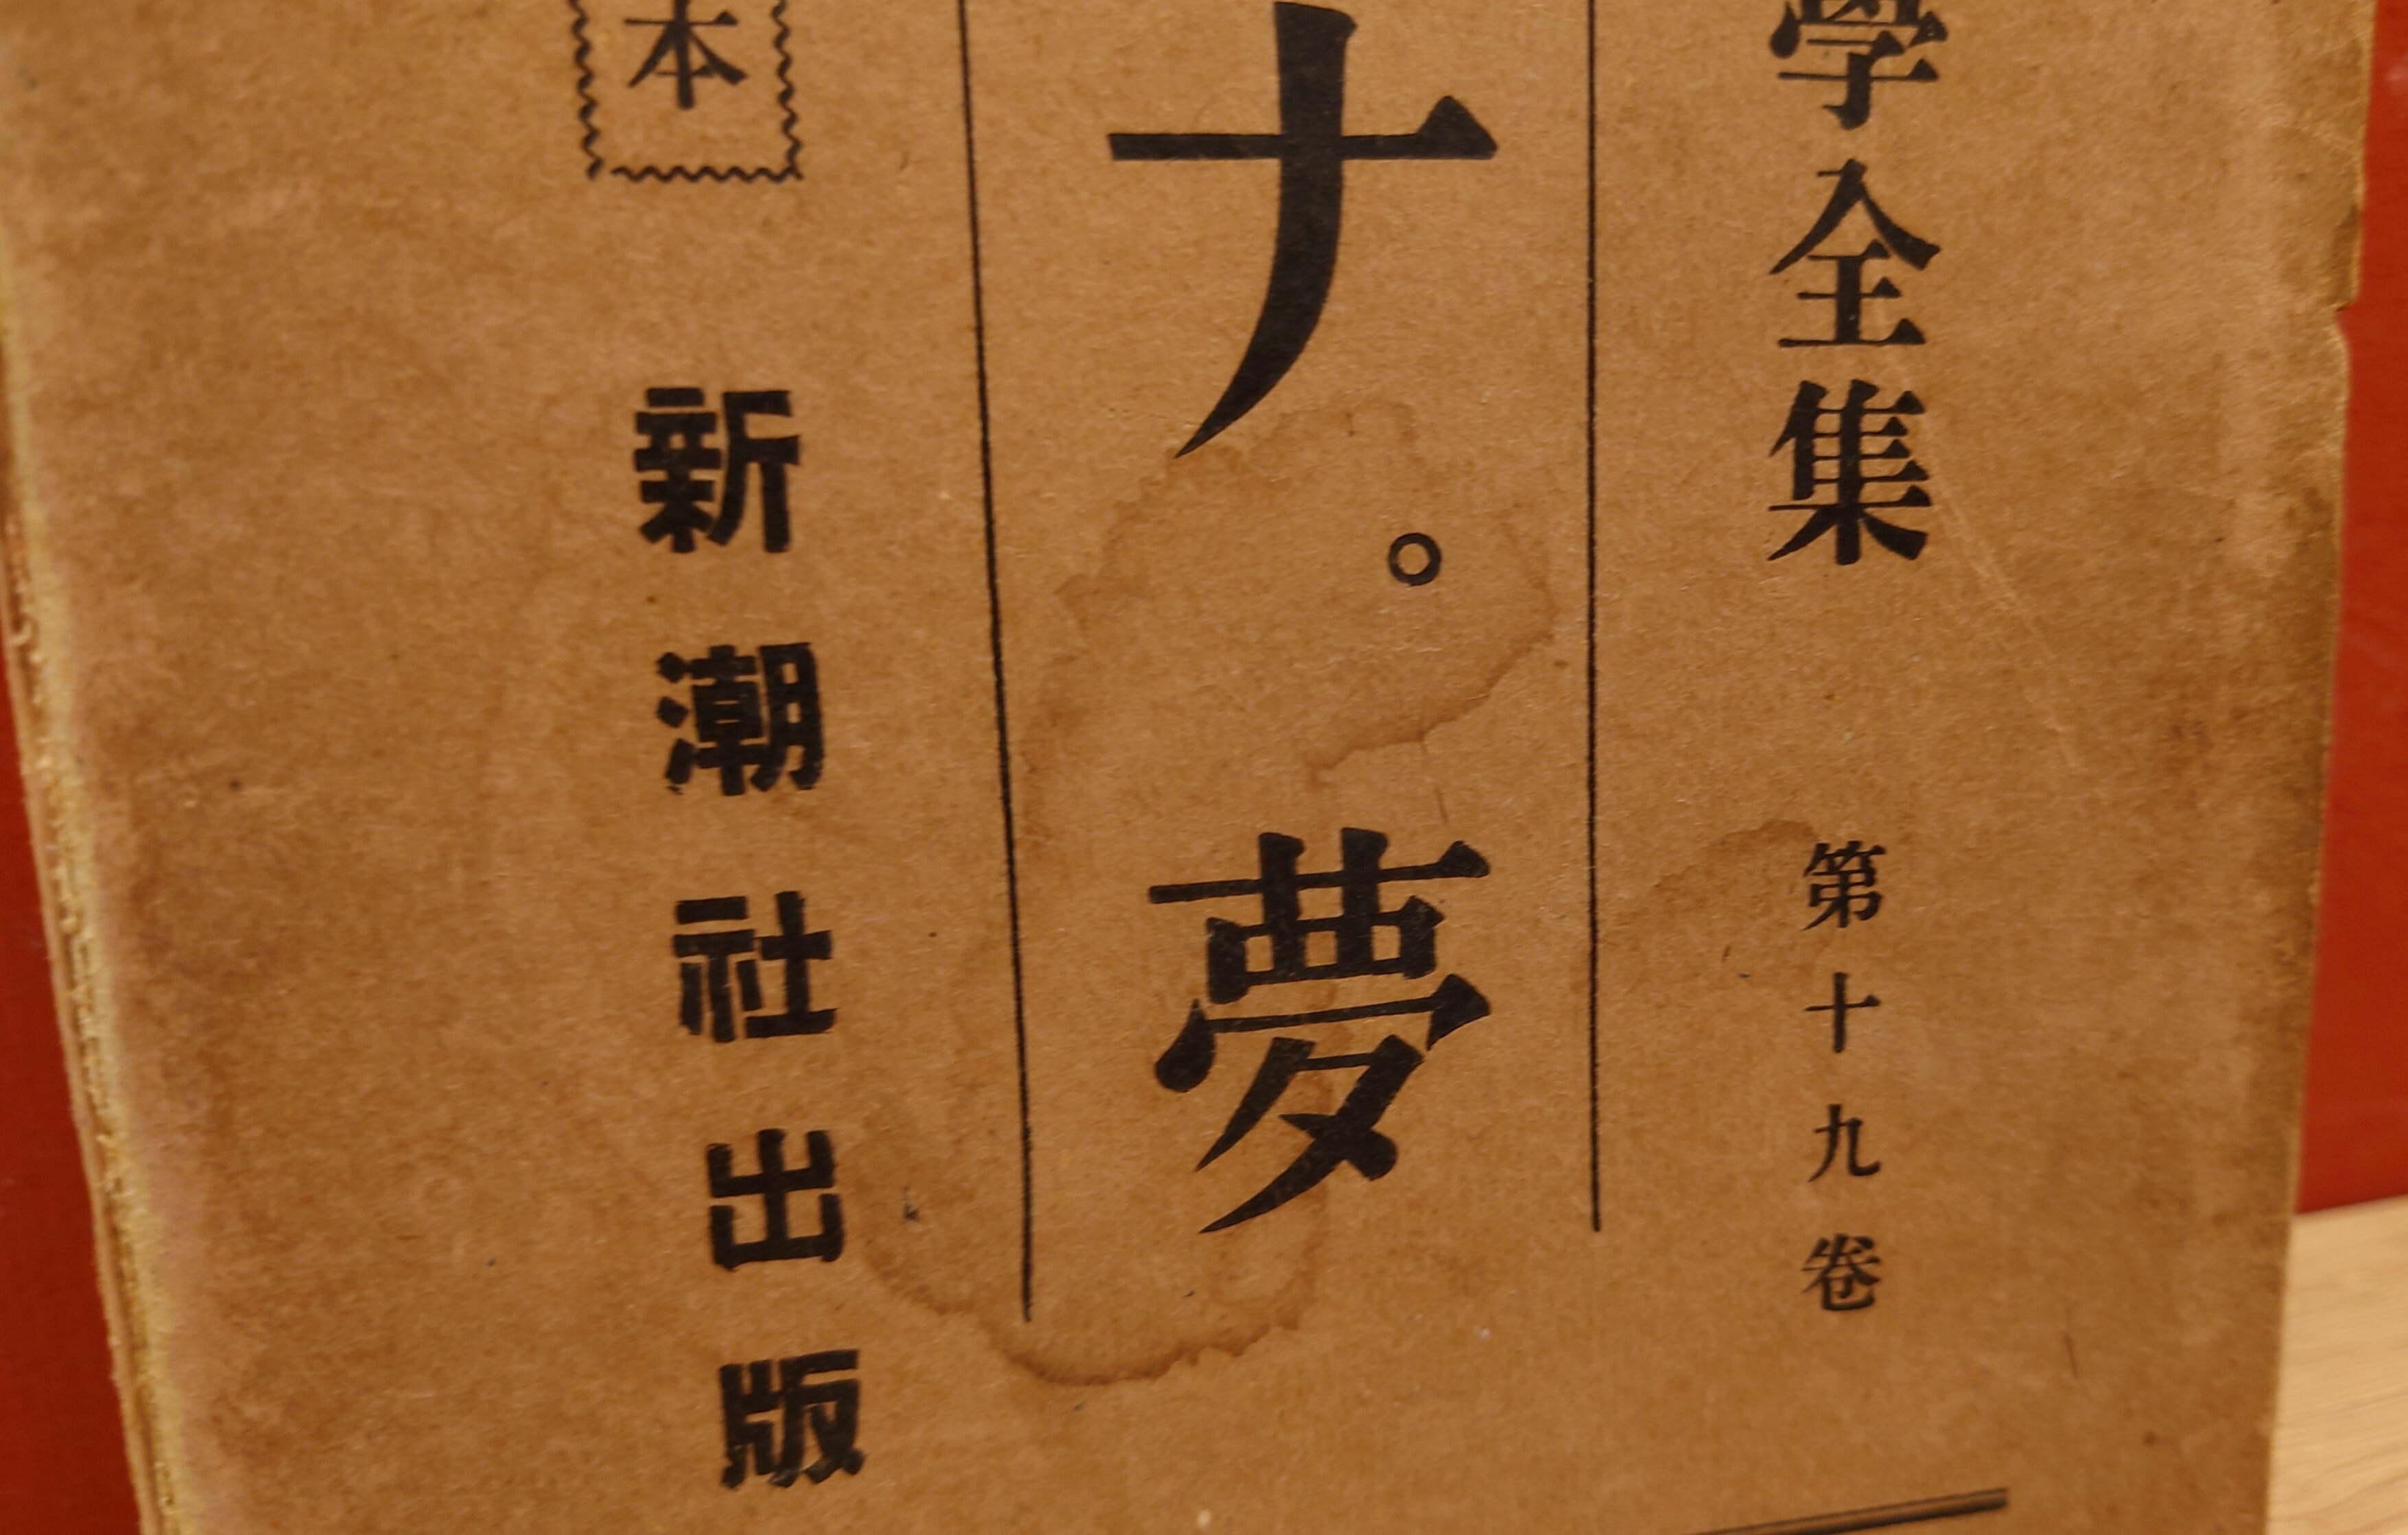 學全集 第十九卷
ナ。夢
本
新潮社出版